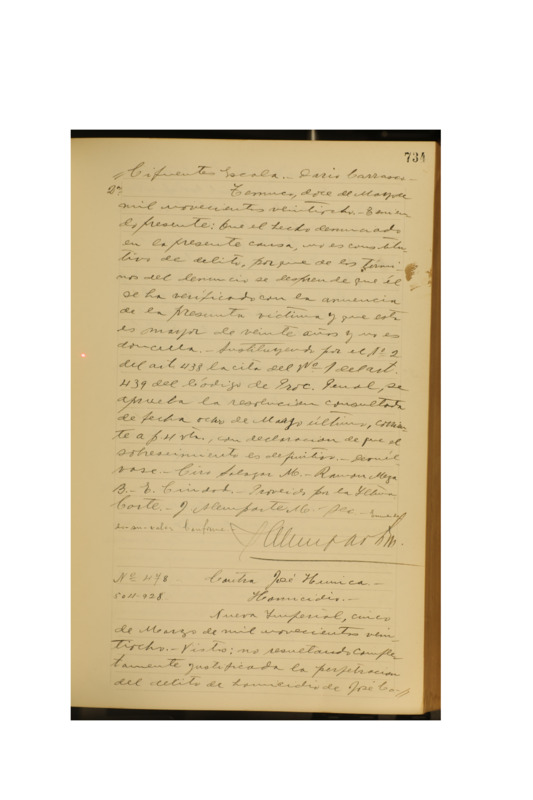 734
Cifuentes Escala.- Dario Carrasco.-
2ª Temuco, doce de Mayo de
mil novecientos veintiocho.- Tenien
do presente: Que el hecho denunciado
en la presente causa, no es constitu
tivo de delito, porque de los térmi
nos del denuncio se desprende que él
se ha verificado con la anuencia
de la presunta víctima y que esta
es mayor de veinte años y no es
doncella.- Sustituyendo por el Nº 2
del art 438 la cita del Nº 1 del art.
439 del Código de Proc. Penal, se
aprueba la resolución consultada
de fecha ocho de Marzo último, corrien
te a f 4 vta., con declaración de que el
sobreseimiento es definitivo.- Devuél
vase.- Ciro Salazar M.- Ramon Meza
B.- E. Ciudad.- Proveído por la Iltma
Corte.- J Alemparte M.- Sec.-
Conforme
Nº 478 Contra José Hunica.-
Homicidio.-
Nueva Imperial, cinco
de Marzo de mil novecientos vein
tiocho.- Vistos: no resultando comple
tamente justificada la perpetración
del delito de homicidio de José